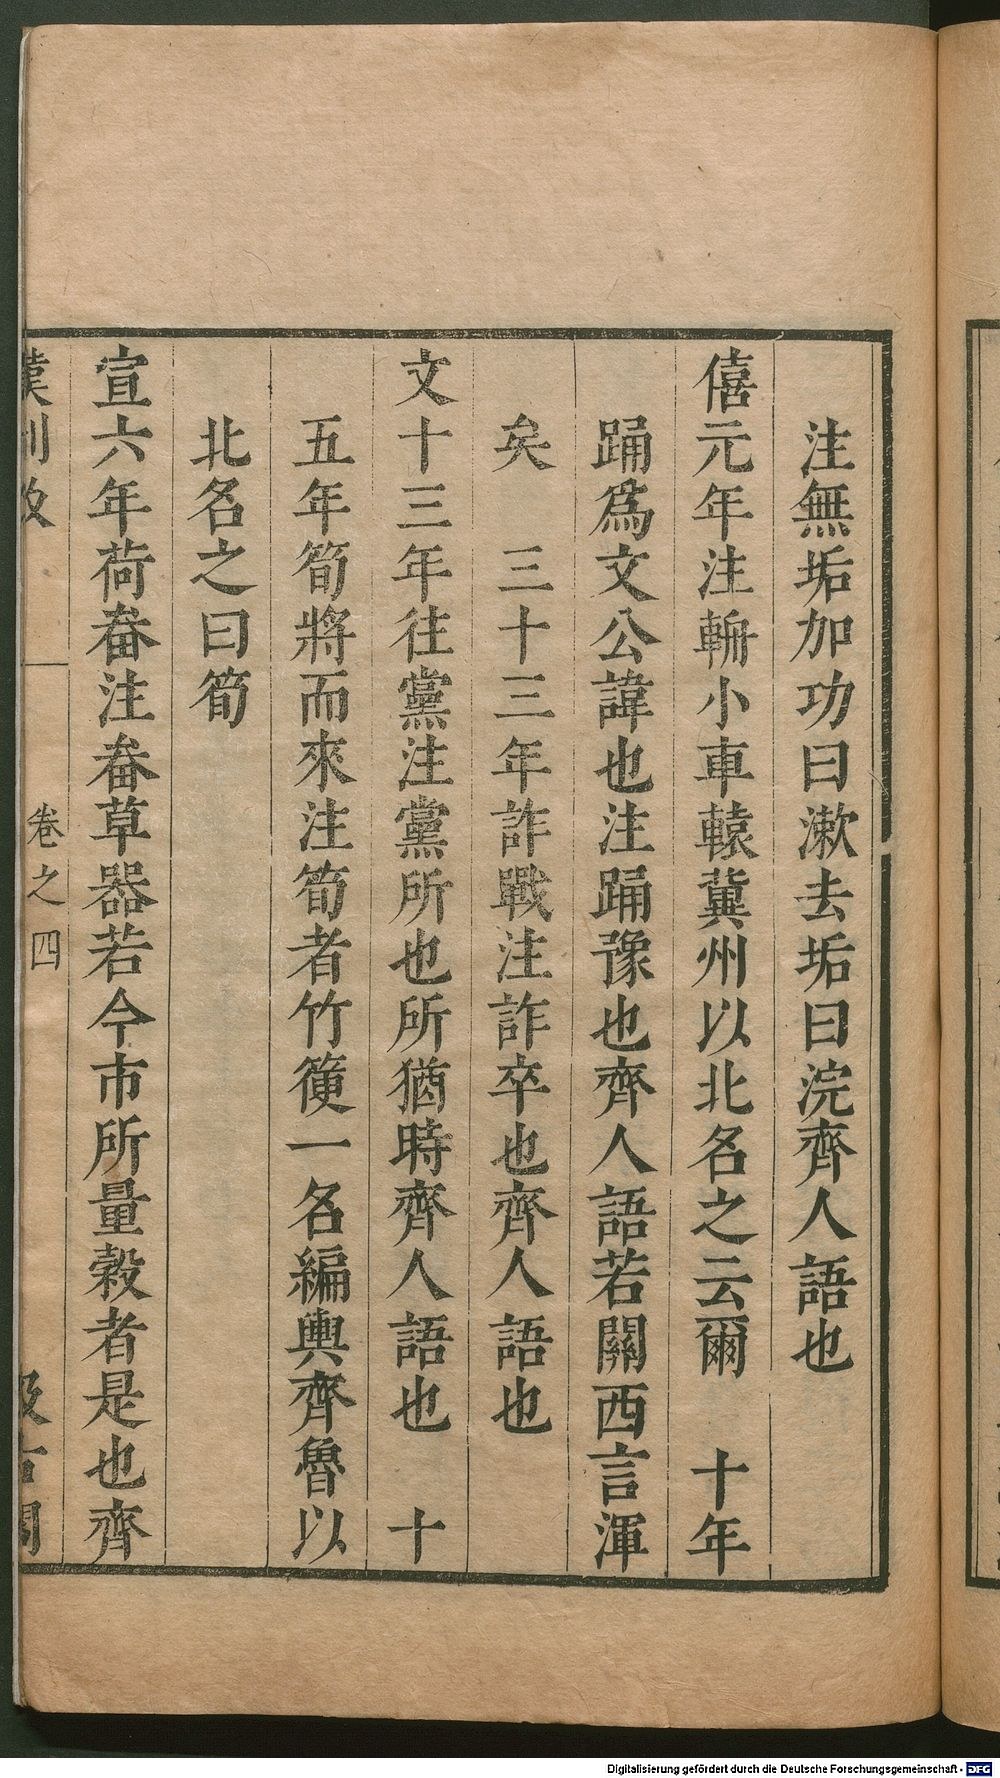 注無垢加功曰漱去垢曰浣齊人語也
僖元年注輈小車轅冀州以北名之云爾　十年
踊爲文公諱也注踊豫也齊人語若關西言渾
矣　三十三年詐戰注詐卒也齊人語也
文十三年往黨注黨所也所猶時齊人語也　十
五年筍將而來注筍者竹箯一名編輿齊魯以
北名之曰筍
宣六年荷畚注畚草器若今市所量穀者是也齊
卷之四
Digitalisierung gefördert durch die Deutsche Forschungsgemeinschaft - DFG